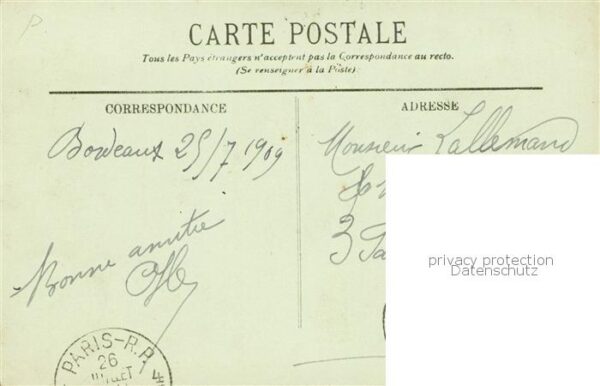 P
CARTE POSTALE
Tous les Pays étrangers n'acceptent pas la Correspondance au recto.
(Se renseigner à la Poste)
CORRESPONDANCE
ADRESSE
Bordeaux 25/7 1909
Bonne amitié
Monsieur Lallemand
3
privacy protection
Datenschutz
PARIS-R.P.
26
JUILLET